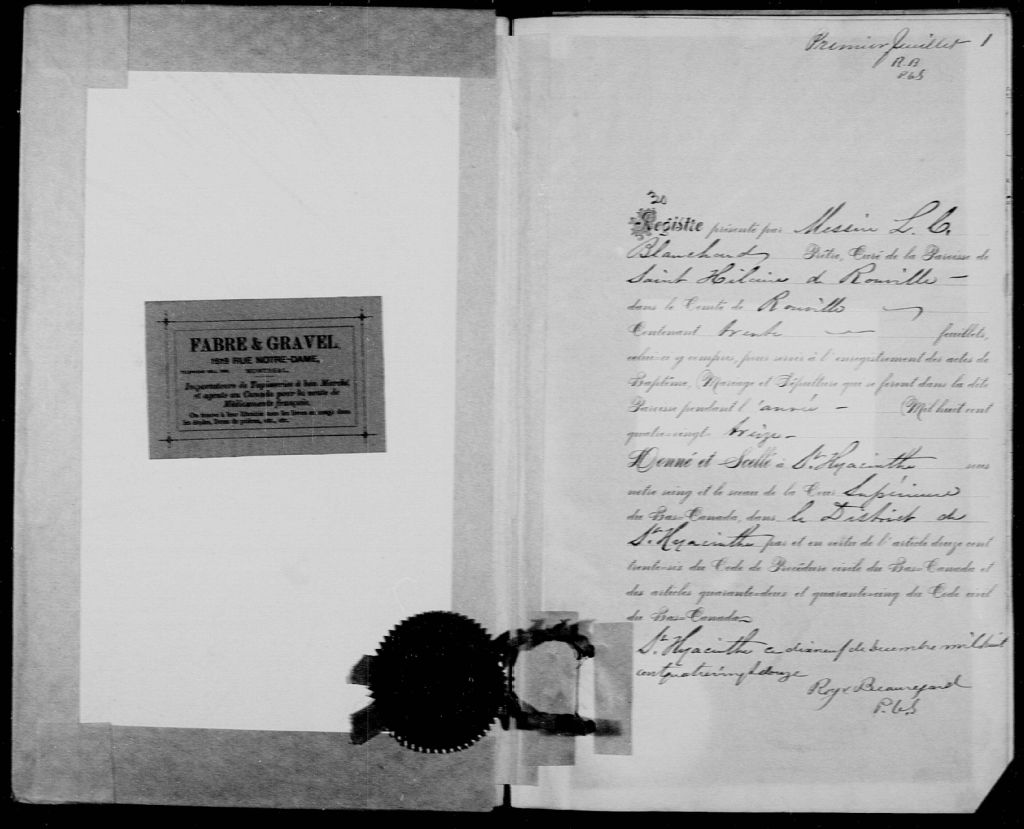 FABRE & GRAVEL,
1619 RUE NOTRE-DAME,
MONTREAL.
Importateurs de Tapisseries à bon Marché
et agents au Canada pour la vente de
Médicaments français.
On trouve à leur librairie tous les livres en usage dans
les écoles, livres de prières, etc., etc.
Premier feuillet 1
R.B
P.C.S
30
Registre présenté par Messire L. C.
Blanchard Prêtre, Curé de la Paroisse de
Saint Hilaire de Rouville —
dans le Comté de Rouville —
Contenant trente — feuillets,
celui-ci y compris, pour servir à l'enregistrement des actes de
Baptême, Mariage et Sépulture qui se feront dans la dite
Paroisse pendant l'année — Mil huit cent
quatre-vingt treize —
Donné et Scellé à St. Hyacinthe sous
notre seing et le sceau de la Cour Supérieure
du Bas-Canada, dans le District de
St. Hyacinthe par et en vertu de l'article douze cent
trente-six du Code de Procédure civile du Bas-Canada et
des articles quarante-deux et quarante-cinq du Code civil
du Bas-Canada —
St. Hyacinthe ce dixneuf de décembre mil huit
cent quatrevingt douze
Roy & Beauregard
P.C.S